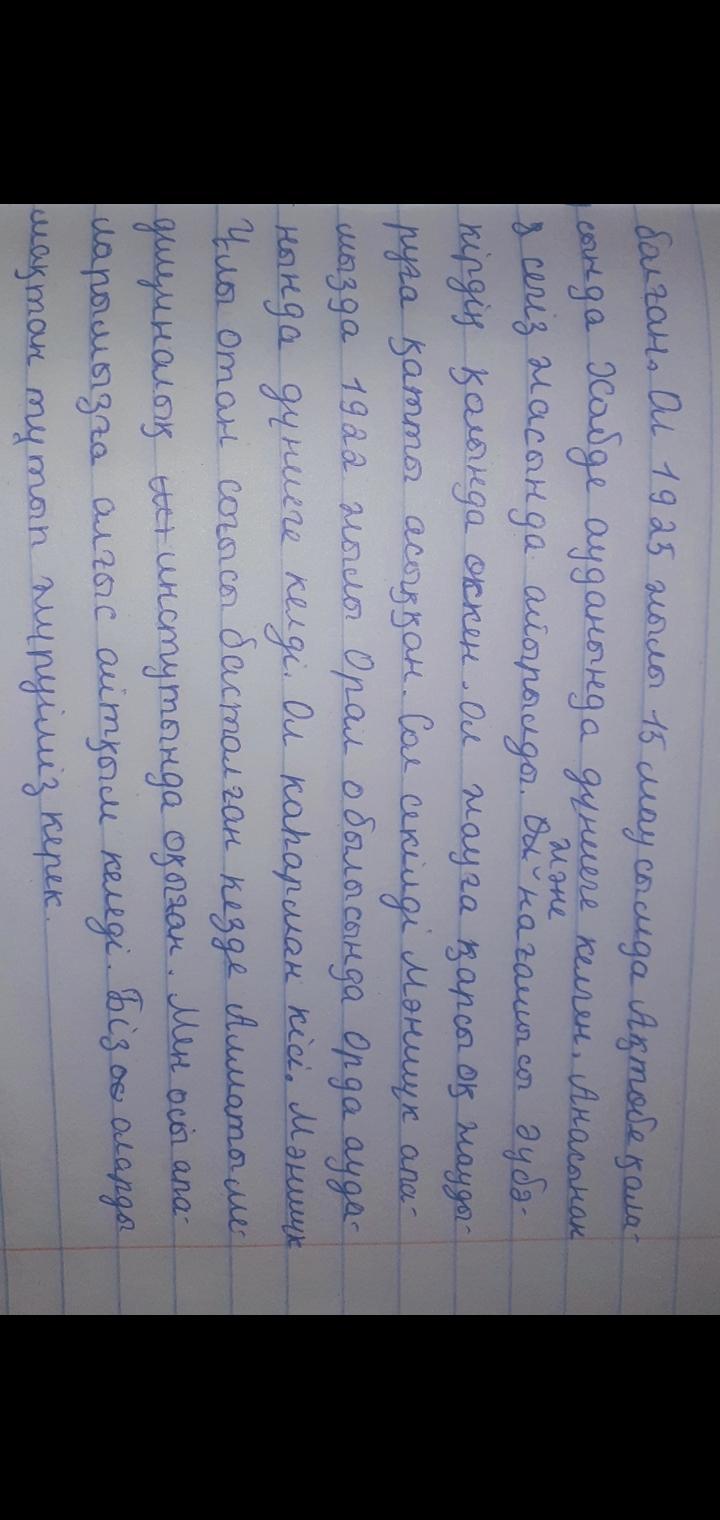 болған. Ол 1925 жылы 15 маусымда Ақтөбе қала-
сында Хобде ауданында дүниеге келген. Анасынан
сегіз жасында айырылды. және нағашысы Әубә-
кірдің қолында өскен. Ол жауға қарсы оқ жауды-
руға қатты асыққан. Сол секілді Мәншүк апа-
мызда 1922 жылы Орал облысында Орда ауда-
нында дүниеге келді. Ол каһарман кісі. Мәншүк
Ұлы отан соғысы басталған кезде Алматы ме-
дициналық институтында оқыған. Мен осы апа-
ларымызға алғыс айтқым келеді. Біз оларды
мақтан тұтып жүруіміз керек.